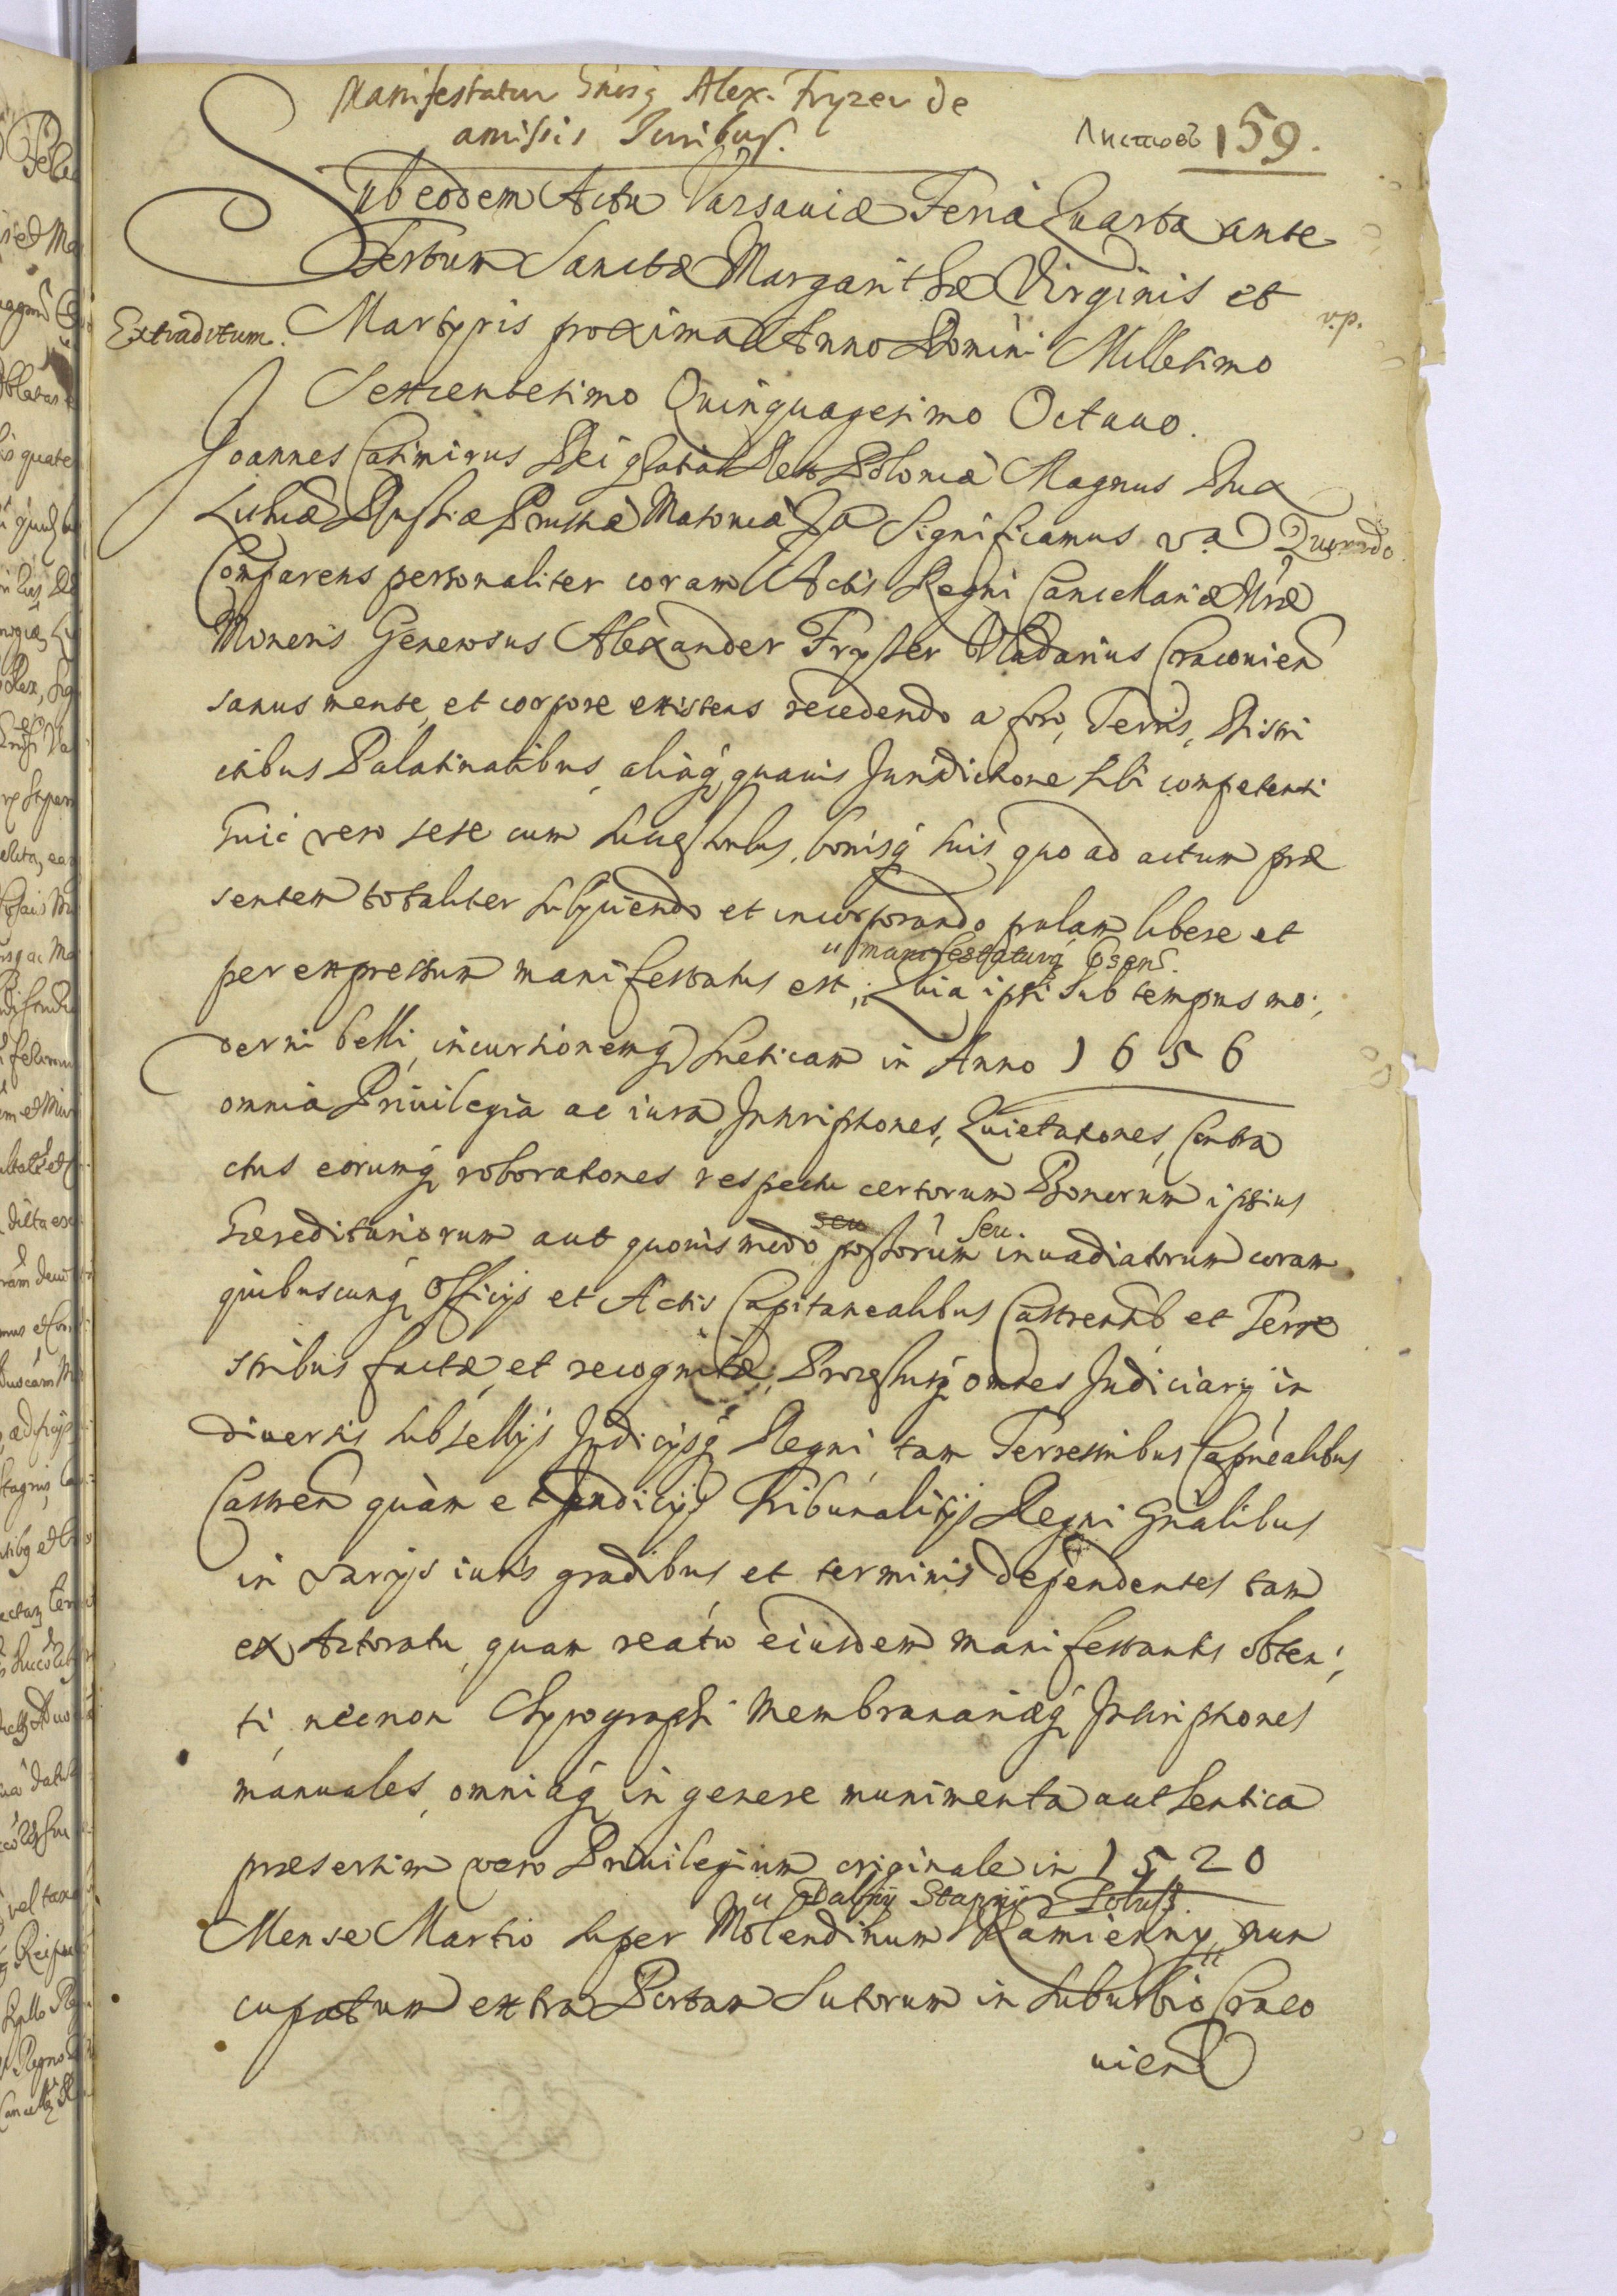 Manifestatur Alex. Fryzer de
amissis Iuribus.
Листовъ 159.
Sub eodem Actu Varsauiæ Feria Quarta ante
Festum Sanctæ Margarithæ Virginis et
v.p.
Extraditum. Martyris proxima Anno Domini Millesimo
Sexcentesimo Quinquagesimo Octauo.
Joannes Casimirus Dei gratia Rex Poloniæ Magnus Dux
Lithuæ Russiæ Prussiæ Masouiæ Significamus
Comparens personaliter coram Actis Regni Cancellariæ Nræ
Minoris Generosus Alexander Fryzer Vladarius Cracouien
sanus mente, et corpore existens recedendo a foro, Terris, Distri
ctibus Palatinatibus, aliaq quauis Jurisdictione sibi competenti
huic vero sese cum Successoribus, bonisq suis quo ad actum præ
sentem totaliter subijciendo et incorporando palam libere et
" manifestaturq
per expressum manifestatus est, Quia ipsi sub tempus mo:
derni belli, incursionemq Sueticam in Anno 1656
omnia Priuilegia ac iura, Inscriptiones, Quietationes, Contra
ctus eorumq roborationes respectu certorum Bonorum ipsius
seu seu
hæreditariorum aut quouismodo inuadiatorum coram
quibuscunq Officijs et Actis Capitanealibus Castrensib et Terre
stribus factæ, et recognitæ, Processusq omnes Judiciarij in
diuersis subsellijs Judicijsq Regni tam Terrestribus Capnealibus
Castren quàm et Judicijs Tribunalitijs Regni Gnalibus
in varijs iuris gradibus et terminis dependentes tam
ex Actoratu, quam reatu eiusdem manifestantis obten:
ti, necnon Chyrographi Membrananiæq Inscriptiones
manuales, omniaq in genere munimenta authentica
præsertim vero Priuilegium originale in 1520
" Dalnij Stapnij
Mense Martio super Molendinum Kamienny " nun
cupatum extra Portam Sutorum in Suburbio Craco
uien